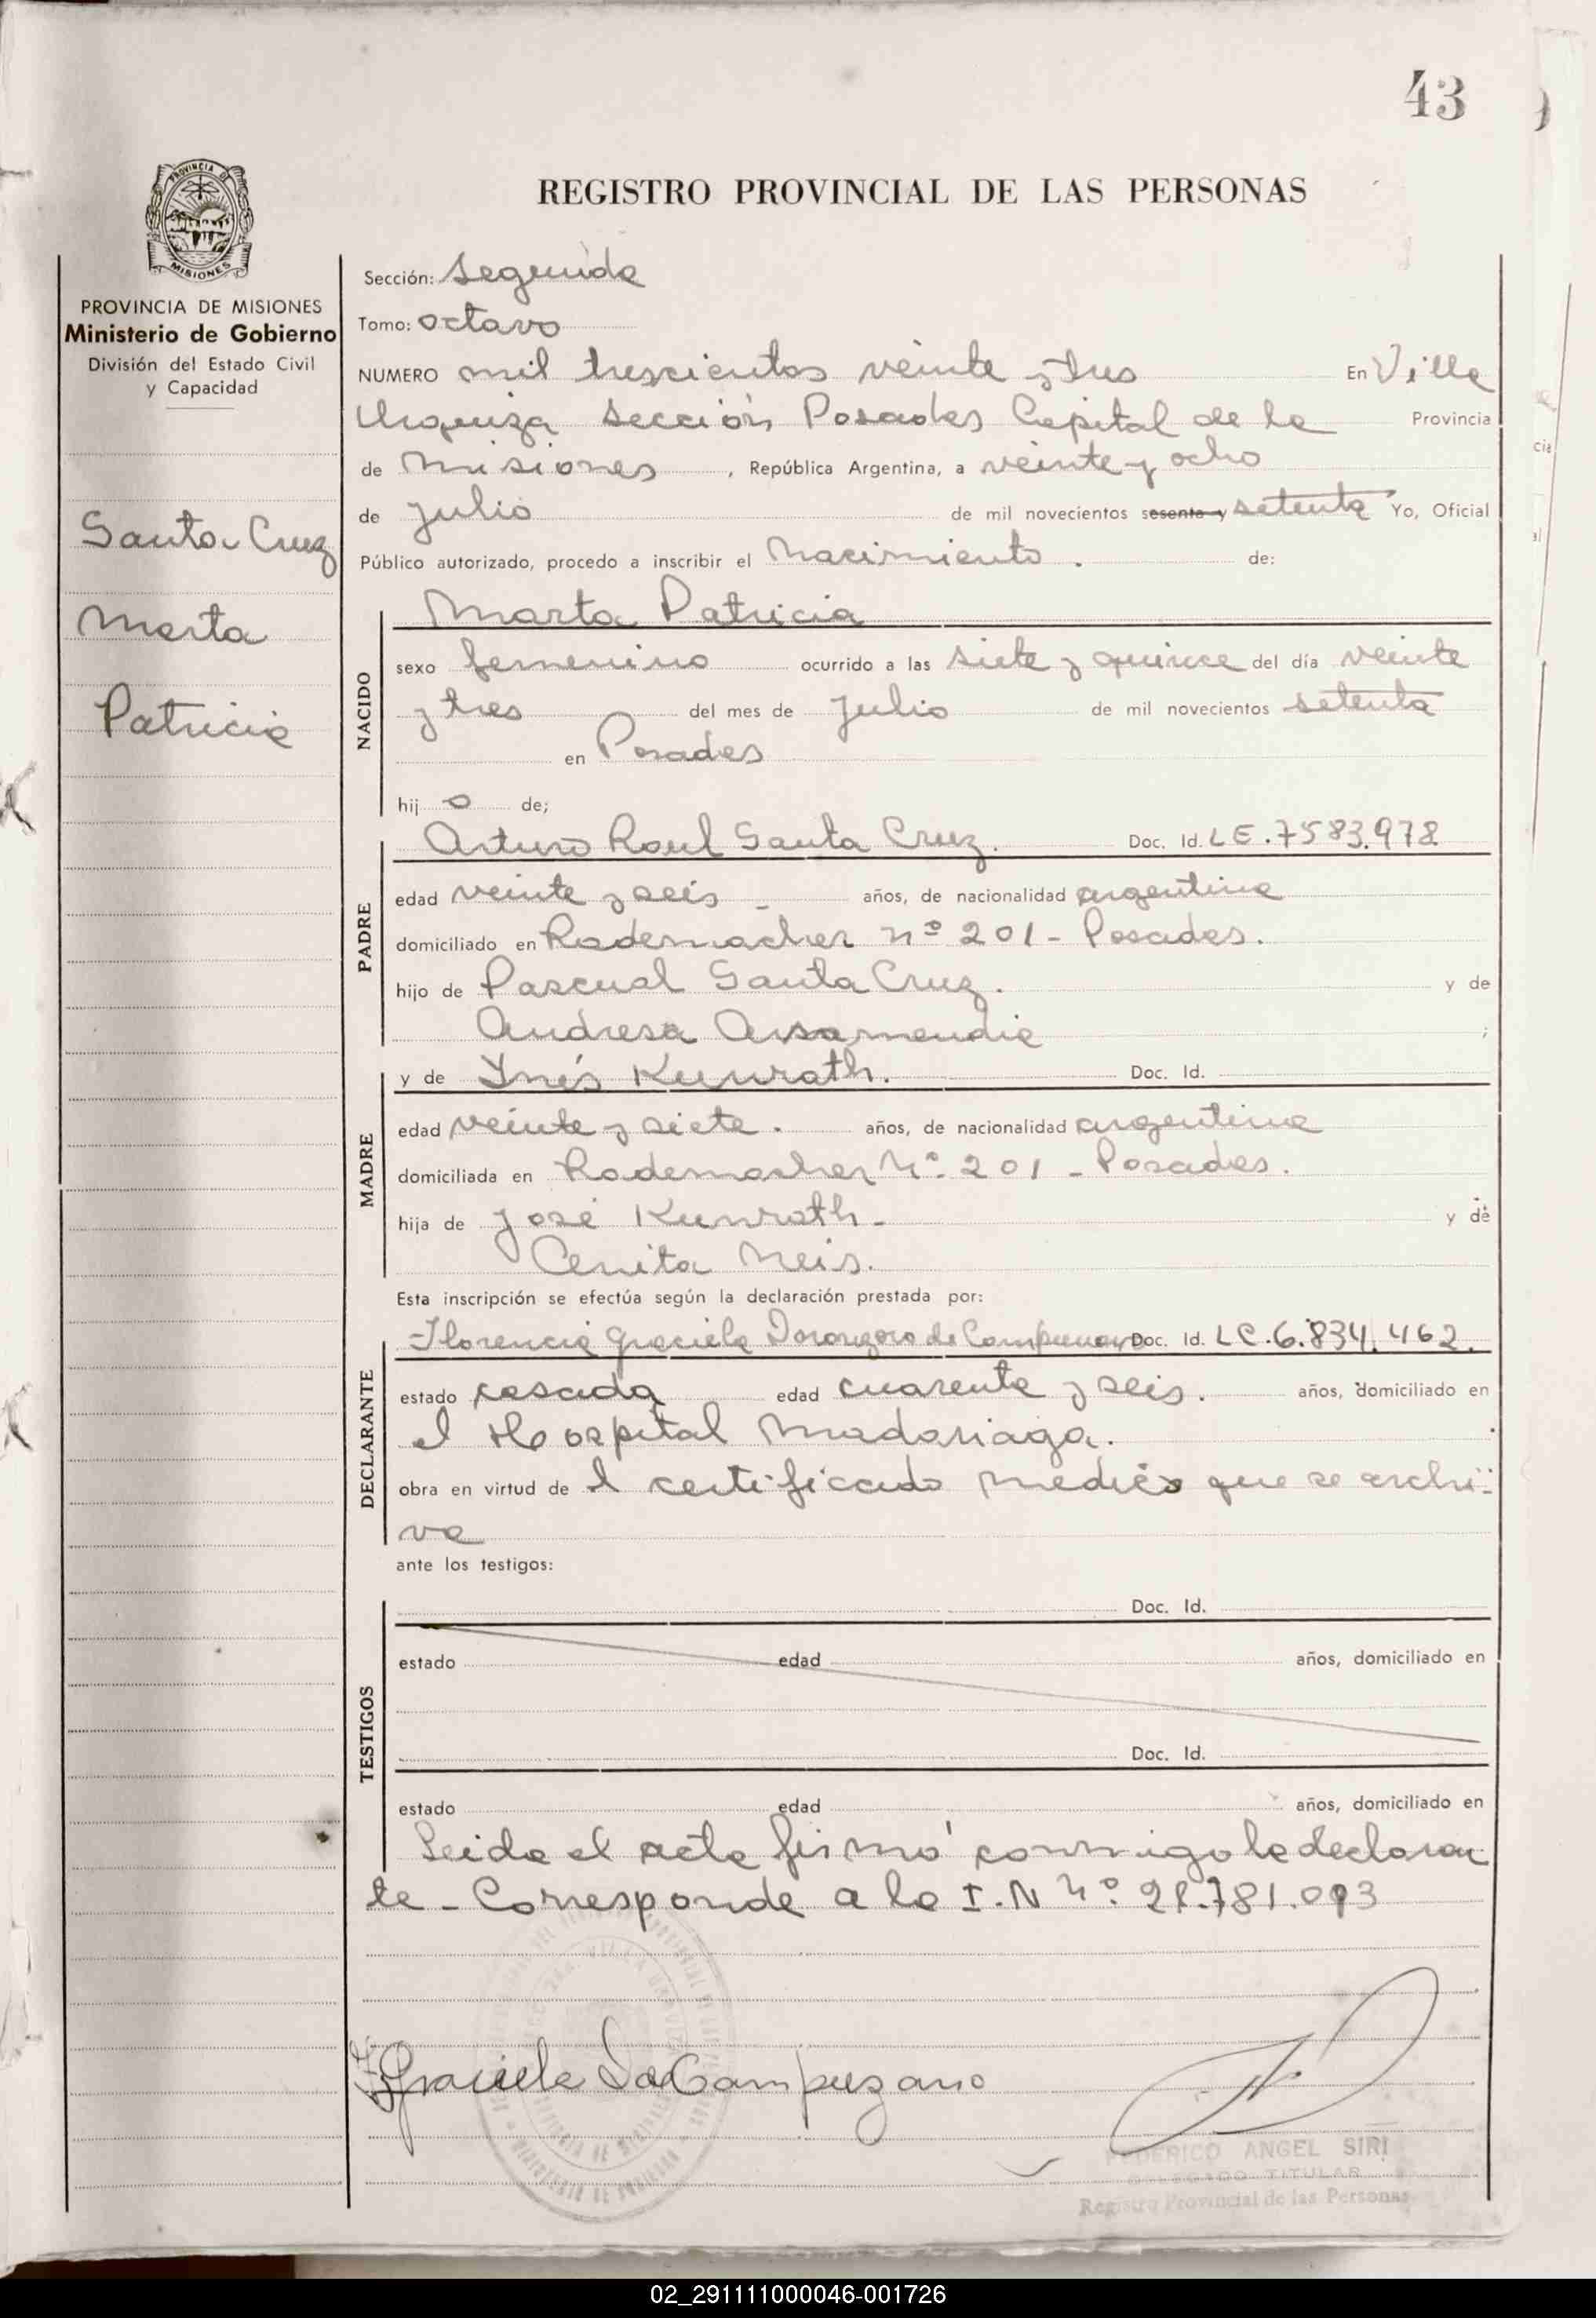 43
REGISTRO PROVINCIAL DE LAS PERSONAS
PROVINCIA DE MISIONES
PROVINCIA DE MISIONES
Ministerio de Gobierno
División del Estado Civil
y Capacidad
Santa Cruz
Marta
Patricia
Sección: segunda
Tomo: octavo
NUMERO mil trescientos veinte y tres En Villa
Urquiza sección Posadas Capital de la Provincia
de Misiones, República Argentina, a veinte y ocho
de julio de mil novecientos sesenta y setenta Yo, Oficial
Público autorizado, procedo a inscribir el Nacimiento. de:
NACIDO
Marta Patricia
sexo femenino ocurrido a las siete y quince del día veinte
y tres del mes de Julio de mil novecientos setenta
en Posadas
hij o de;
PADRE
Arturo Raul Santa Cruz. Doc. Id. LE. 7583.978
edad veinte y seis - años, de nacionalidad argentina
domiciliado en Rademacher nº 201 - Posadas.
hijo de Pascual Santa Cruz. y de
Andresa ;
MADRE
y de Ynés Kunrath. Doc. Id.
edad veinte y siete. años, de nacionalidad argentina
domiciliada en Rademacher Nº 201 - Posadas.
hija de José Kunrath - y de
Cenita Neis.
Esta inscripción se efectúa según la declaración prestada por:
DECLARANTE
Florencia Graciela de Doc. Id. LC. 6.834.462.
estado casada edad cuarenta y seis. años, domiciliado en
el Hospital Madariaga.
obra en virtud de l certificado medico que se archi-
va
ante los testigos:
TESTIGOS
Doc. Id.
estado edad años, domiciliado en
Doc. Id.
estado edad años, domiciliado en
Leida el acta firmó conmigo la declaran
te - Corresponde a la I.N Nº.
Graciela Campuzano
FEDERICO ANGEL SIRI
DELEGADO TITULAR
Registro Provincial de las Personas
02_291111000046-001726